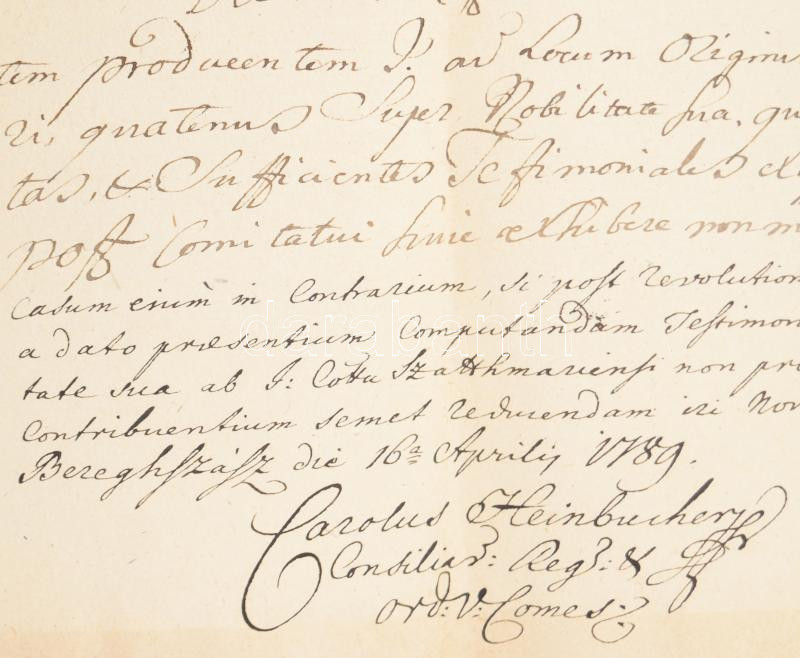 tem producentem J. ad Locum Originis
ri, quatenus Super Nobilitate sua, qu
tas, & Sufficientes Testimoniales ex
post Comitatui huic exhibere non m
Casum enim in Contrarium, si post revolution
a dato præsentium Computandam Testimon
tate sua ab J: Cottu Szatthmariensi non pro
Contribuentium semet reducendam iri Nov
Bereghszász die 16a Aprilis 1789.
Carolus Heinbucher
Consiliar: Reg: &
ord: V: Comes:
darabanth